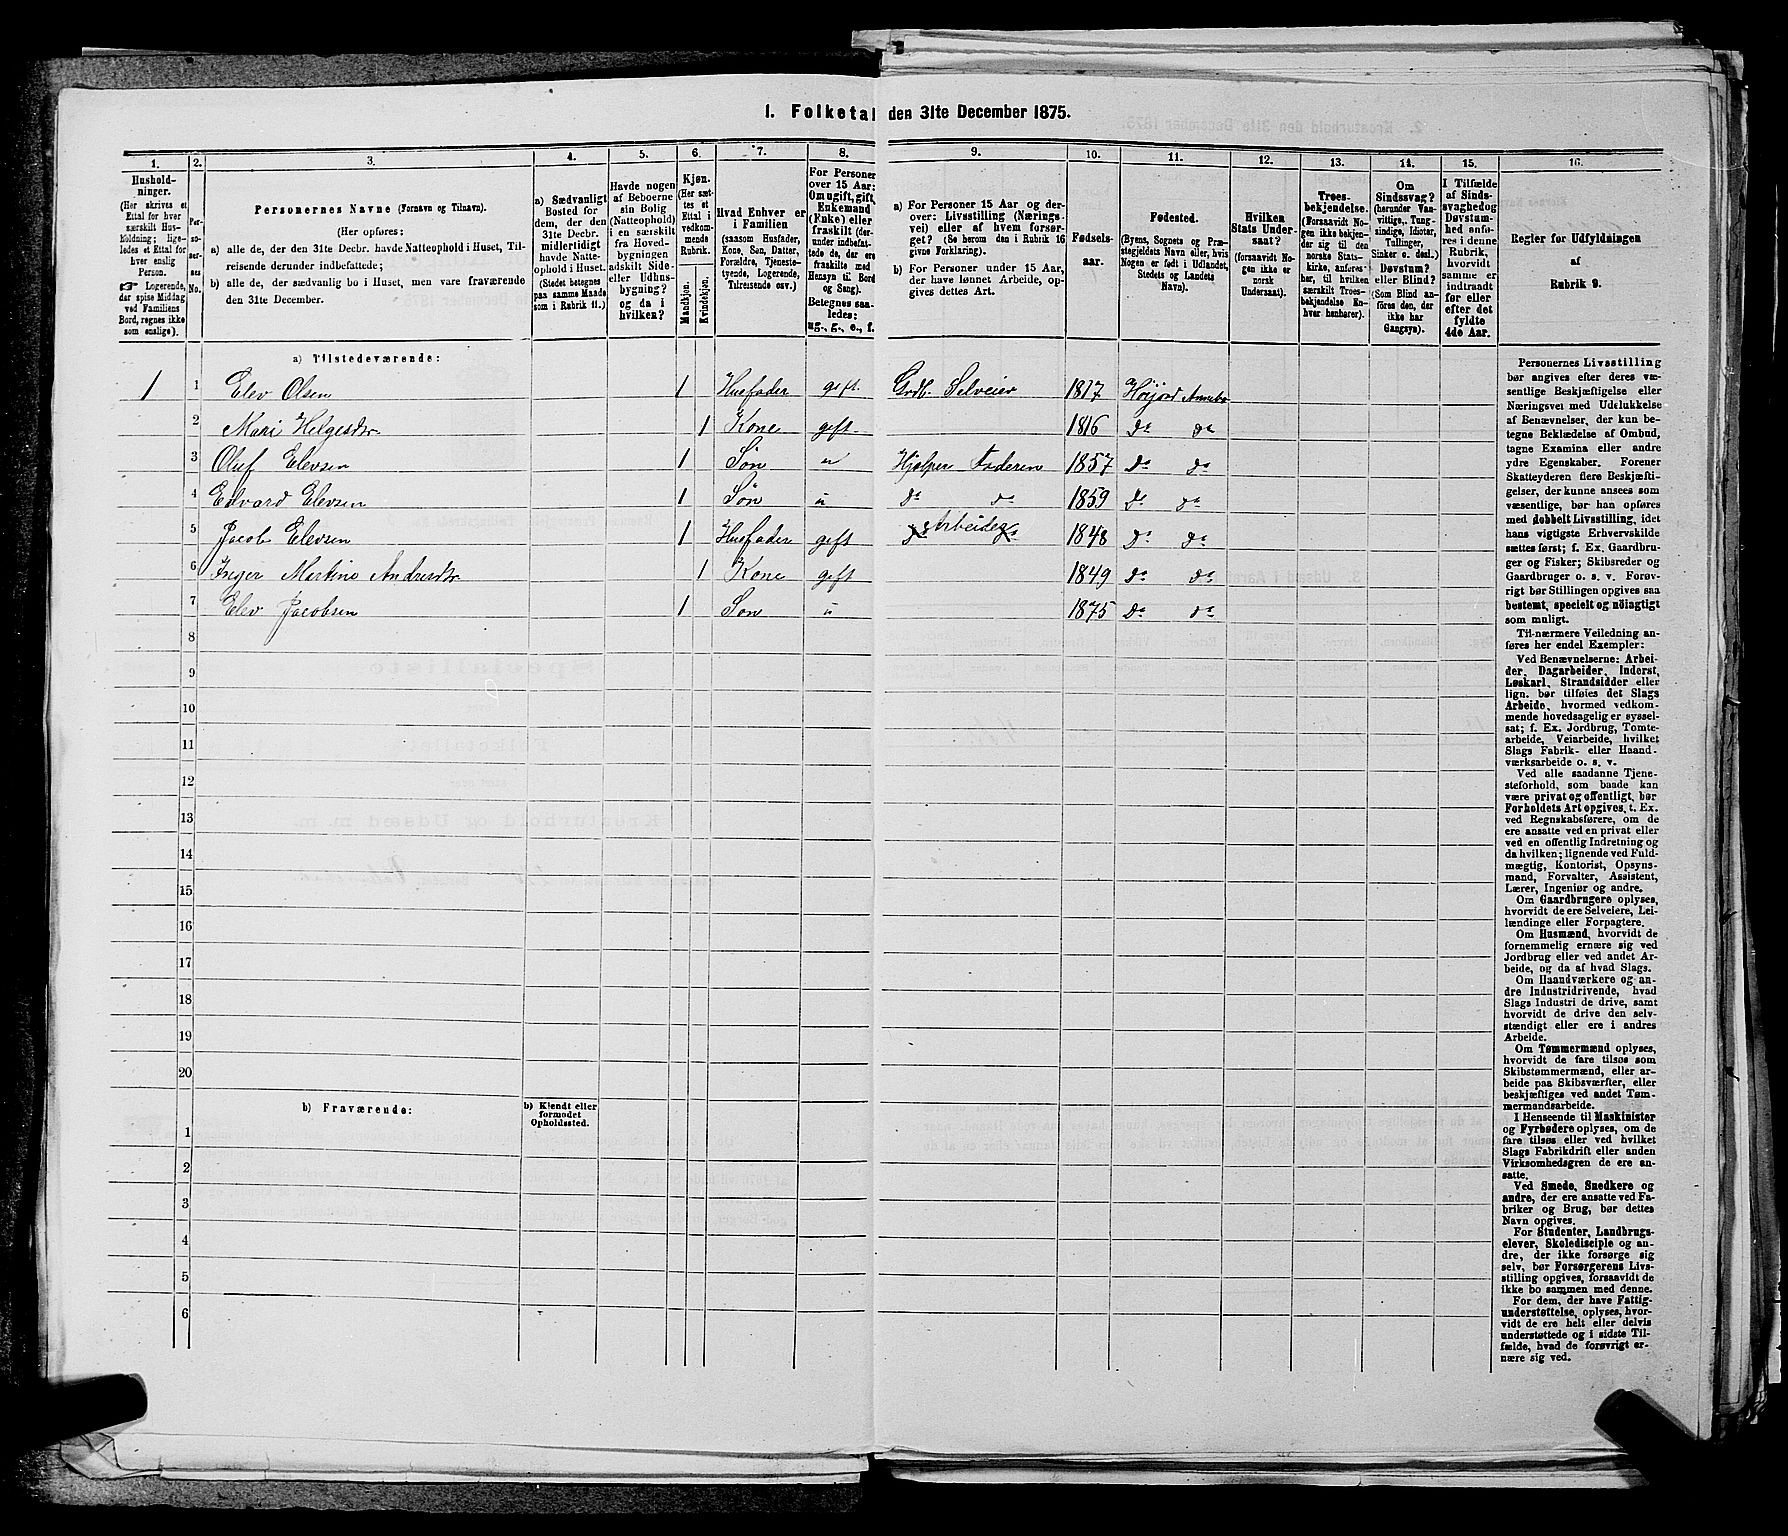 1. Folketal den 31te December 1875.
1.
2.
3.
4.
5.
6.
7.
8.
9.
10.
11.
12.
13.
14.
15.
16.
Husholdninger.
(Her skrives et
Ettal for hver
særskilt Husholdning;
ligeledes et Ettal for
hver enslig
Person.
☛ Logerende,
der spise Middag
ved Familiens
Bord, regnes ikke
som enslige).
Personernes No.
Personernes Navne (Fornavn og Tilnavn).
(Her opføres:
a) alle de, der den 31te Decbr. havde Natteophold i Huset, Tilreisende derunder indbefattede;
b) alle de, der sædvanlig bo i Huset, men vare fraværende
den 31te December.
a) Sædvanligt
Bosted for
dem, der den
31te Decbr.
midlertidigt
havde Natteophold i Huset.
(Stedet betegnes
paa samme Maade
som i Rubrik 11.)
Havde nogen
af Beboerne
sin Bolig
(Natteophold)
i en særskilt
fra Hovedbygningen
adskilt Side-
eller Udhusbygning?
og da i
hvilken?
Kjøn.
(Her sættes et
Ettal i
vedkommende
Rubrik.
Mandkjøn.
Kvindekjøn.
Hvad Enhver er
i Familien
(saasom Husfader,
Kone, Søn, Datter,
Forældre, Tjenestetyende, Logerende,
Tilreisende osv.)
For Personer
over 15 Aar:
Om ugift, gift,
Enkemand
(Enke) eller
fraskilt (derunder indbefattede de, der ere
fraskilte med
Hensyn til Bord
og Seng).
Betegnes saaledes:
ug., g., e., f.
a) For Personer 15 Aar og derover: Livsstilling (Næringsvei) eller af hvem forsørget? (Se herom den i Rubrik 16
givne Forklaring).
b) For Personer under 15 Aar,
der have lønnet Arbeide, opgives dettes Art.
Fødselsaar.
Fødested.
(Byens, Sognets og Præstegjeldets Navn eller, hvis
Nogen er født i Udlandet,
Stedets og Landets
Navn).
Hvilken
Stats Undersaat?
(forsaavidt Nogen ikke er
norsk
Undersaat).
Troesbekjendelse.
(Forsaavidt Nogen ikke bekjender sig til den
norske Statskirke, anføres
her, til hvilken
særskilt Troesbekjendelse Enhver henhører).
Om
Sindssvag?
(herunder Vanvittige, Tungsindige, Idioter,
Tullinger,
Sinker o. desl.)
Døvstum?
eller Blind?
(Som Blind anføres den, der
ikke har
Gangsyn).
I Tilfælde
af Sindssvaghed og
Døvstumhed anføres i denne
Rubrik,
hvorvidt
samme er
indtraadt
før eller
efter det
fyldte
4de Aar.
Regler for Udfyldningen
af
Rubrik 9.
a) Tilstedeværende:
1 1 Elev Olsen 1 Husfader gift. Grdb. Selveier 1817 Høijord
2 Mari Helgesdtr 1 Kone gift 1816 Do do
3 Oluf Elevsen 1 Søn u Hjælper Faderen 1857 Do do
4 Edvard Elevsen 1 Søn u do do 1859 Do do
5 Jacob Elevsen 1 Husfader gift Arbeider 1848 Do do
6 Inger Martine Andersdtr 1 Kone gift 1849 Do do
7 Elev Jacobsen 1 Søn u 1875 Do do
8
9
10
11
12
13
14
15
16
17
18
19
20
b) Fraværende:
b) Kjendt eller
formodet
Opholdssted.
1
2
3
4
5
6
Personernes Livsstilling
bør angives efter deres væsentlige Beskjæftigelse eller
Næringsvei med Udelukkelse
af Benævnelser, der kun betegne Beklædelse af Ombud,
tagne Examina eller andre
ydre Egenskaber. Forener
Skatteyderen flere Beskjæftigelser, der kunne ansees som
væsentlige, bør han opføres
med dobbelt Livsstilling, idet
hans vigtigste Erhvervskilde
sættes først; f. Ex. Gaardbruger og Fisker; Skibsreder og
Gaardbruger o. s. v. Forøvrigt bør Stillingen opgives saa
bestemt, specielt og nöiagtigt
som muligt.
Til nærmere Veiledning anføres her endel Exempler:
Ved Benævnelserne: Arbeider, Dagarbeider, Inderst,
Løskarl, Strandsidder eller
lign. bør tilføies det Slags
Arbeide, hvormed vedkommende hovedsagelig er sysselsat; f. Ex. Jordbrug, Tomtearbeide, Veiarbeide, hvilket
Slags Fabrik- eller Haandværksarbeide o. s. v.
Ved alle saadanne Tjenesteforhold, som baade kan
være privat og offentligt, bør
Forholdets Art opgives, t. Ex.
ved Regnskabsførere, om de
ere ansatte ved en privat eller
ved en offentlig Indretning og
da hvilken; lignende ved Fuldmægtig, Kontorist, Opsynsmand, Forvalter, Assistent,
Lærer, Ingeniør og andre.
Om Gaardbrugere oplyses,
hvorvidt de ere Selveiere, Leilændinge eller Forpagtere.
Om Husmænd, hvorvidt de
fornemmelig ernære sig ved
Jordbrug eller ved andet Arbeide, og da af hvad Slags.
Om Haandværkere og andre Industridrivende, hvad
Slags Industri de drive, samt
hvorvidt de drive den selvstændigt eller ere i andres
Arbeide.
Om Tømmermænd oplyses,
hvorvidt de fare tilsøs som
Skibstømmermænd, eller arbeide paa Skibsværfter, eller
beskjæftiges ved andet Tømmermandsarbeide.
I Henseende til Maskinister
og Fyrbødere oplyses, om de
fare tilsøs eller ved hvilket
Slags Fabrikdrift eller anden
Virksomhedsgren de ere ansatte.
Ved Smede, Snedkere og
andre, der ere ansatte ved Fabriker og Brug, bør dettes
Navn opgives.
For Studenter, Landbrugselever, Skoledisciple og andre, der ikke forsørge sig
selv, bør Forsørgerens Livsstilling opgives, forsaavidt de
ikke bo sammen med denne.
For dem, der have Fattigunderstøttelse, oplyses, hvorvidt de ere helt eller delvis
understøttede og i sidste Tilfælde, hvad de forøvrigt ernære sig ved.